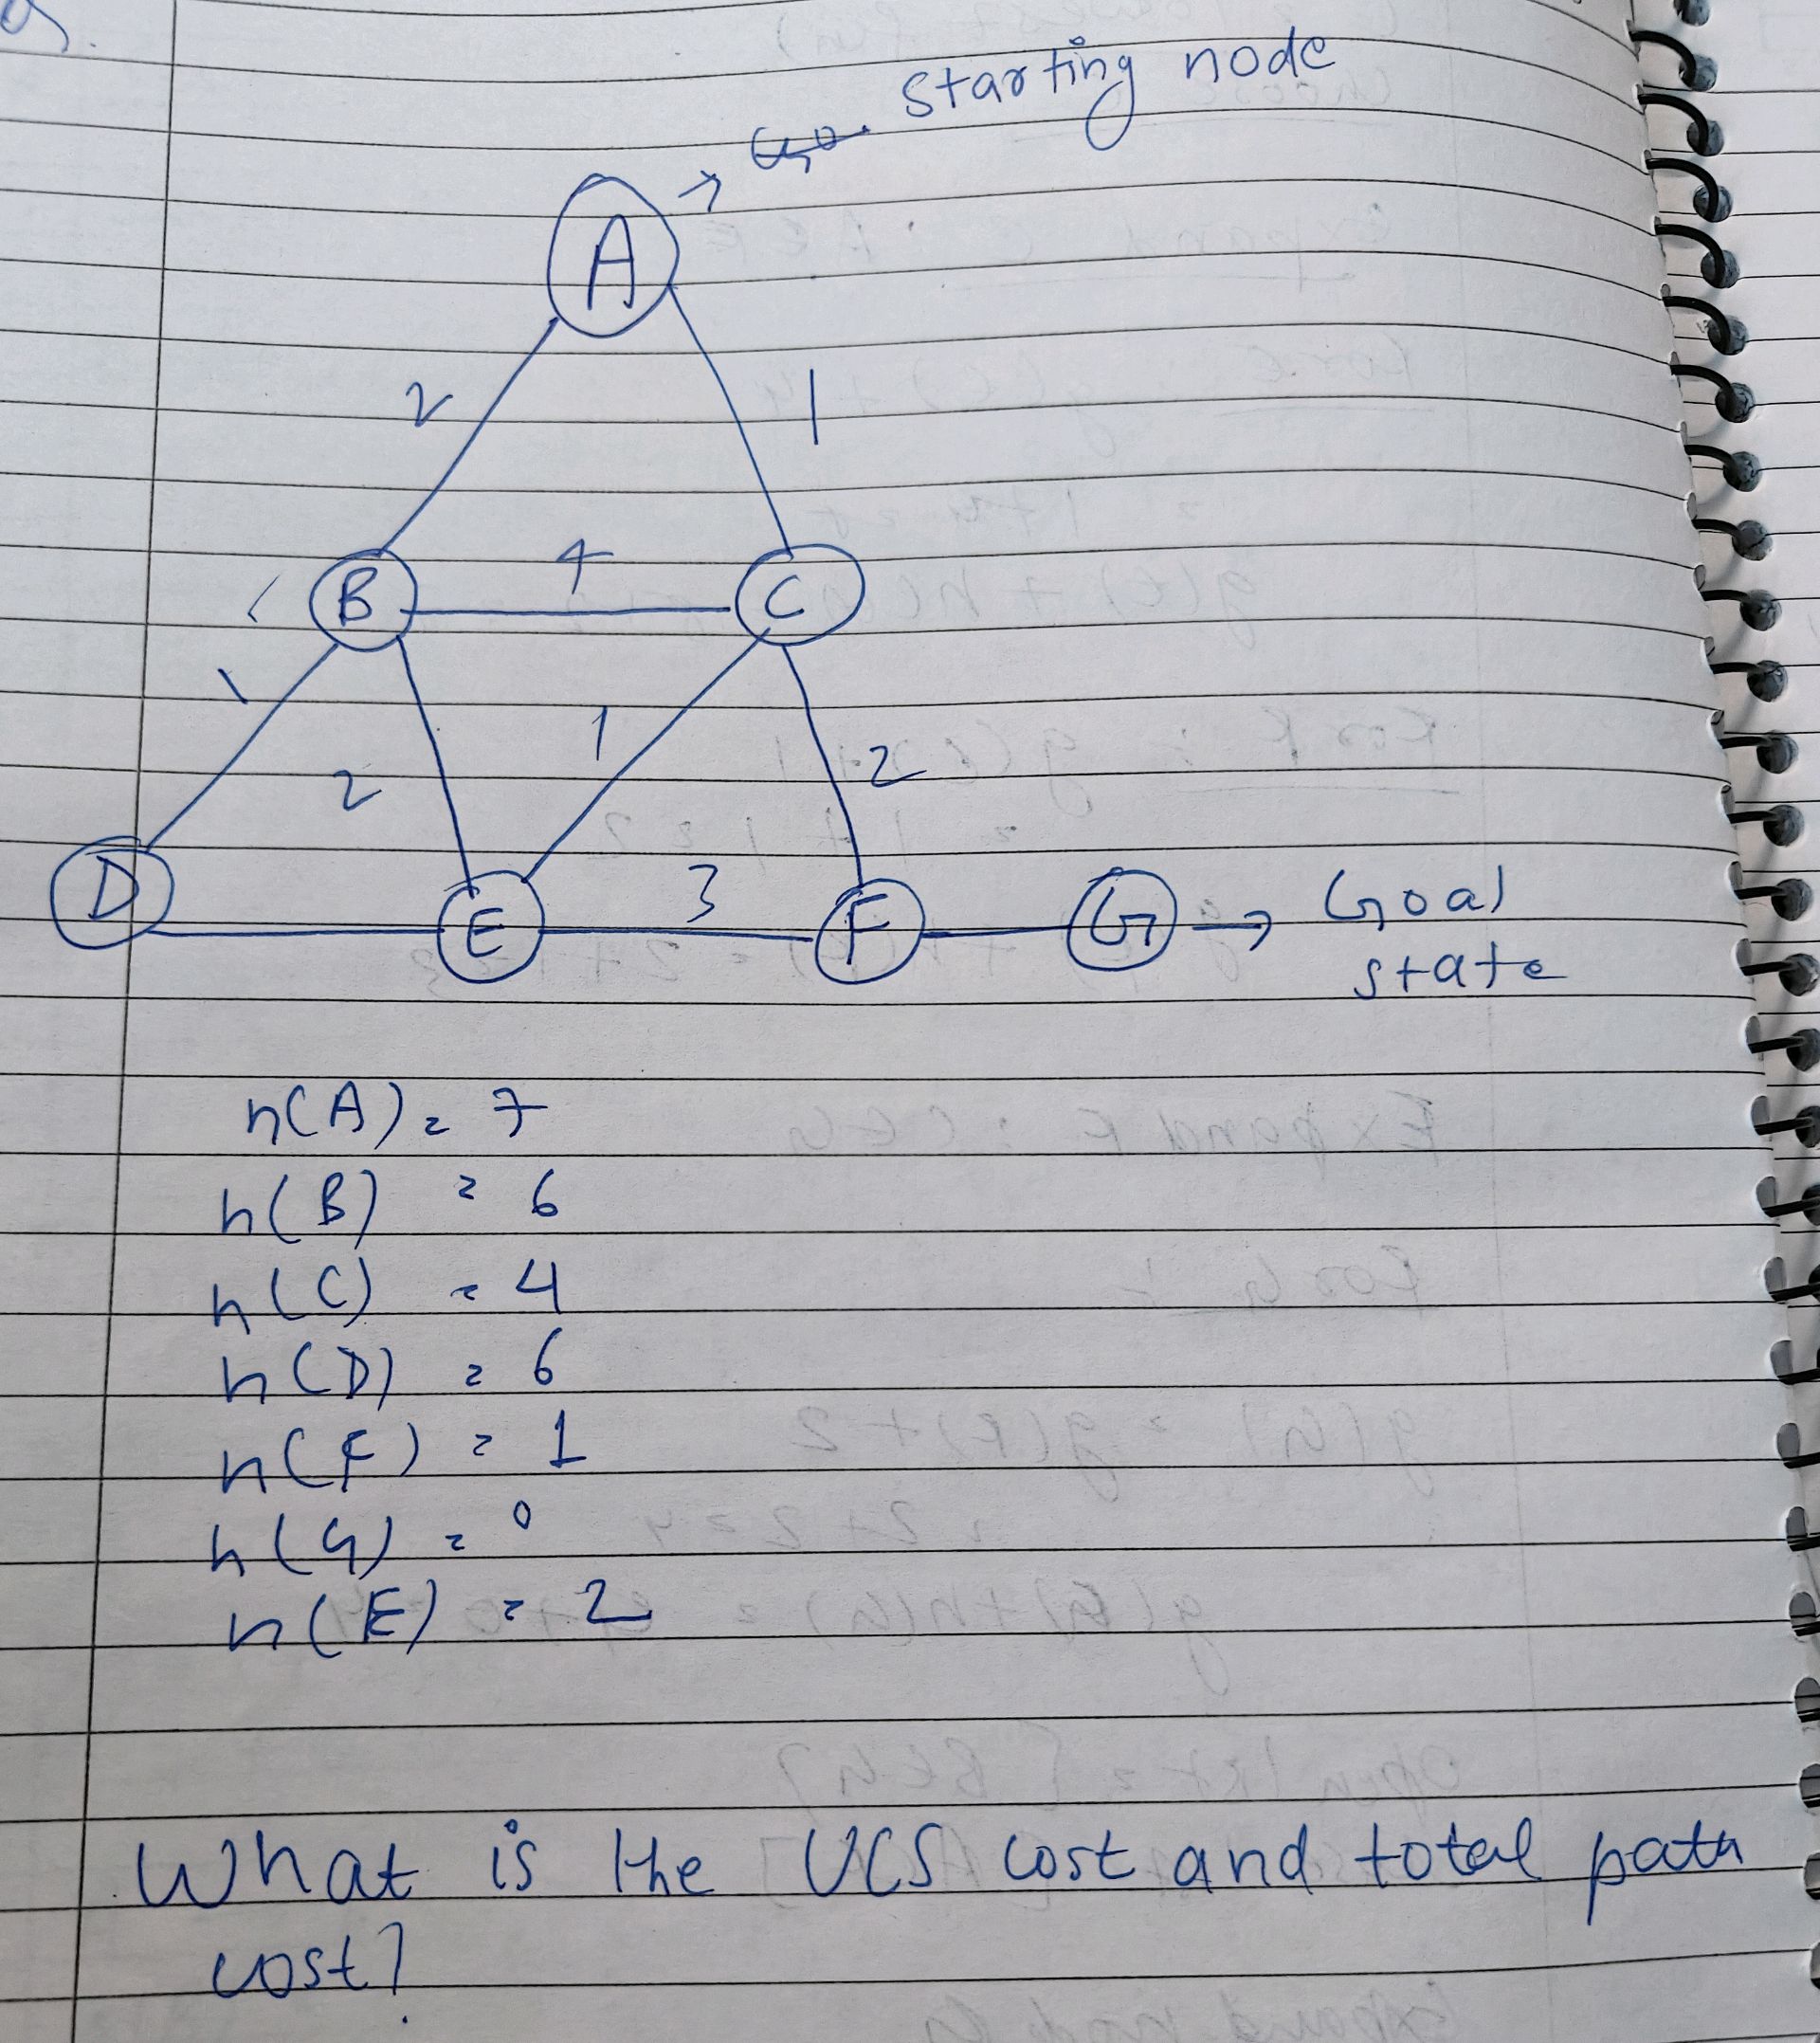 starting node
A →
2
1
B
4
C
1
2
1
2
D
E
3
F
G → Goal
state
h(A) = 7
h(B) = 6
h(C) = 4
h(D) = 6
h(F) = 1
h(G) = 0
h(E) = 2
What is the UCS cost and total path
cost?